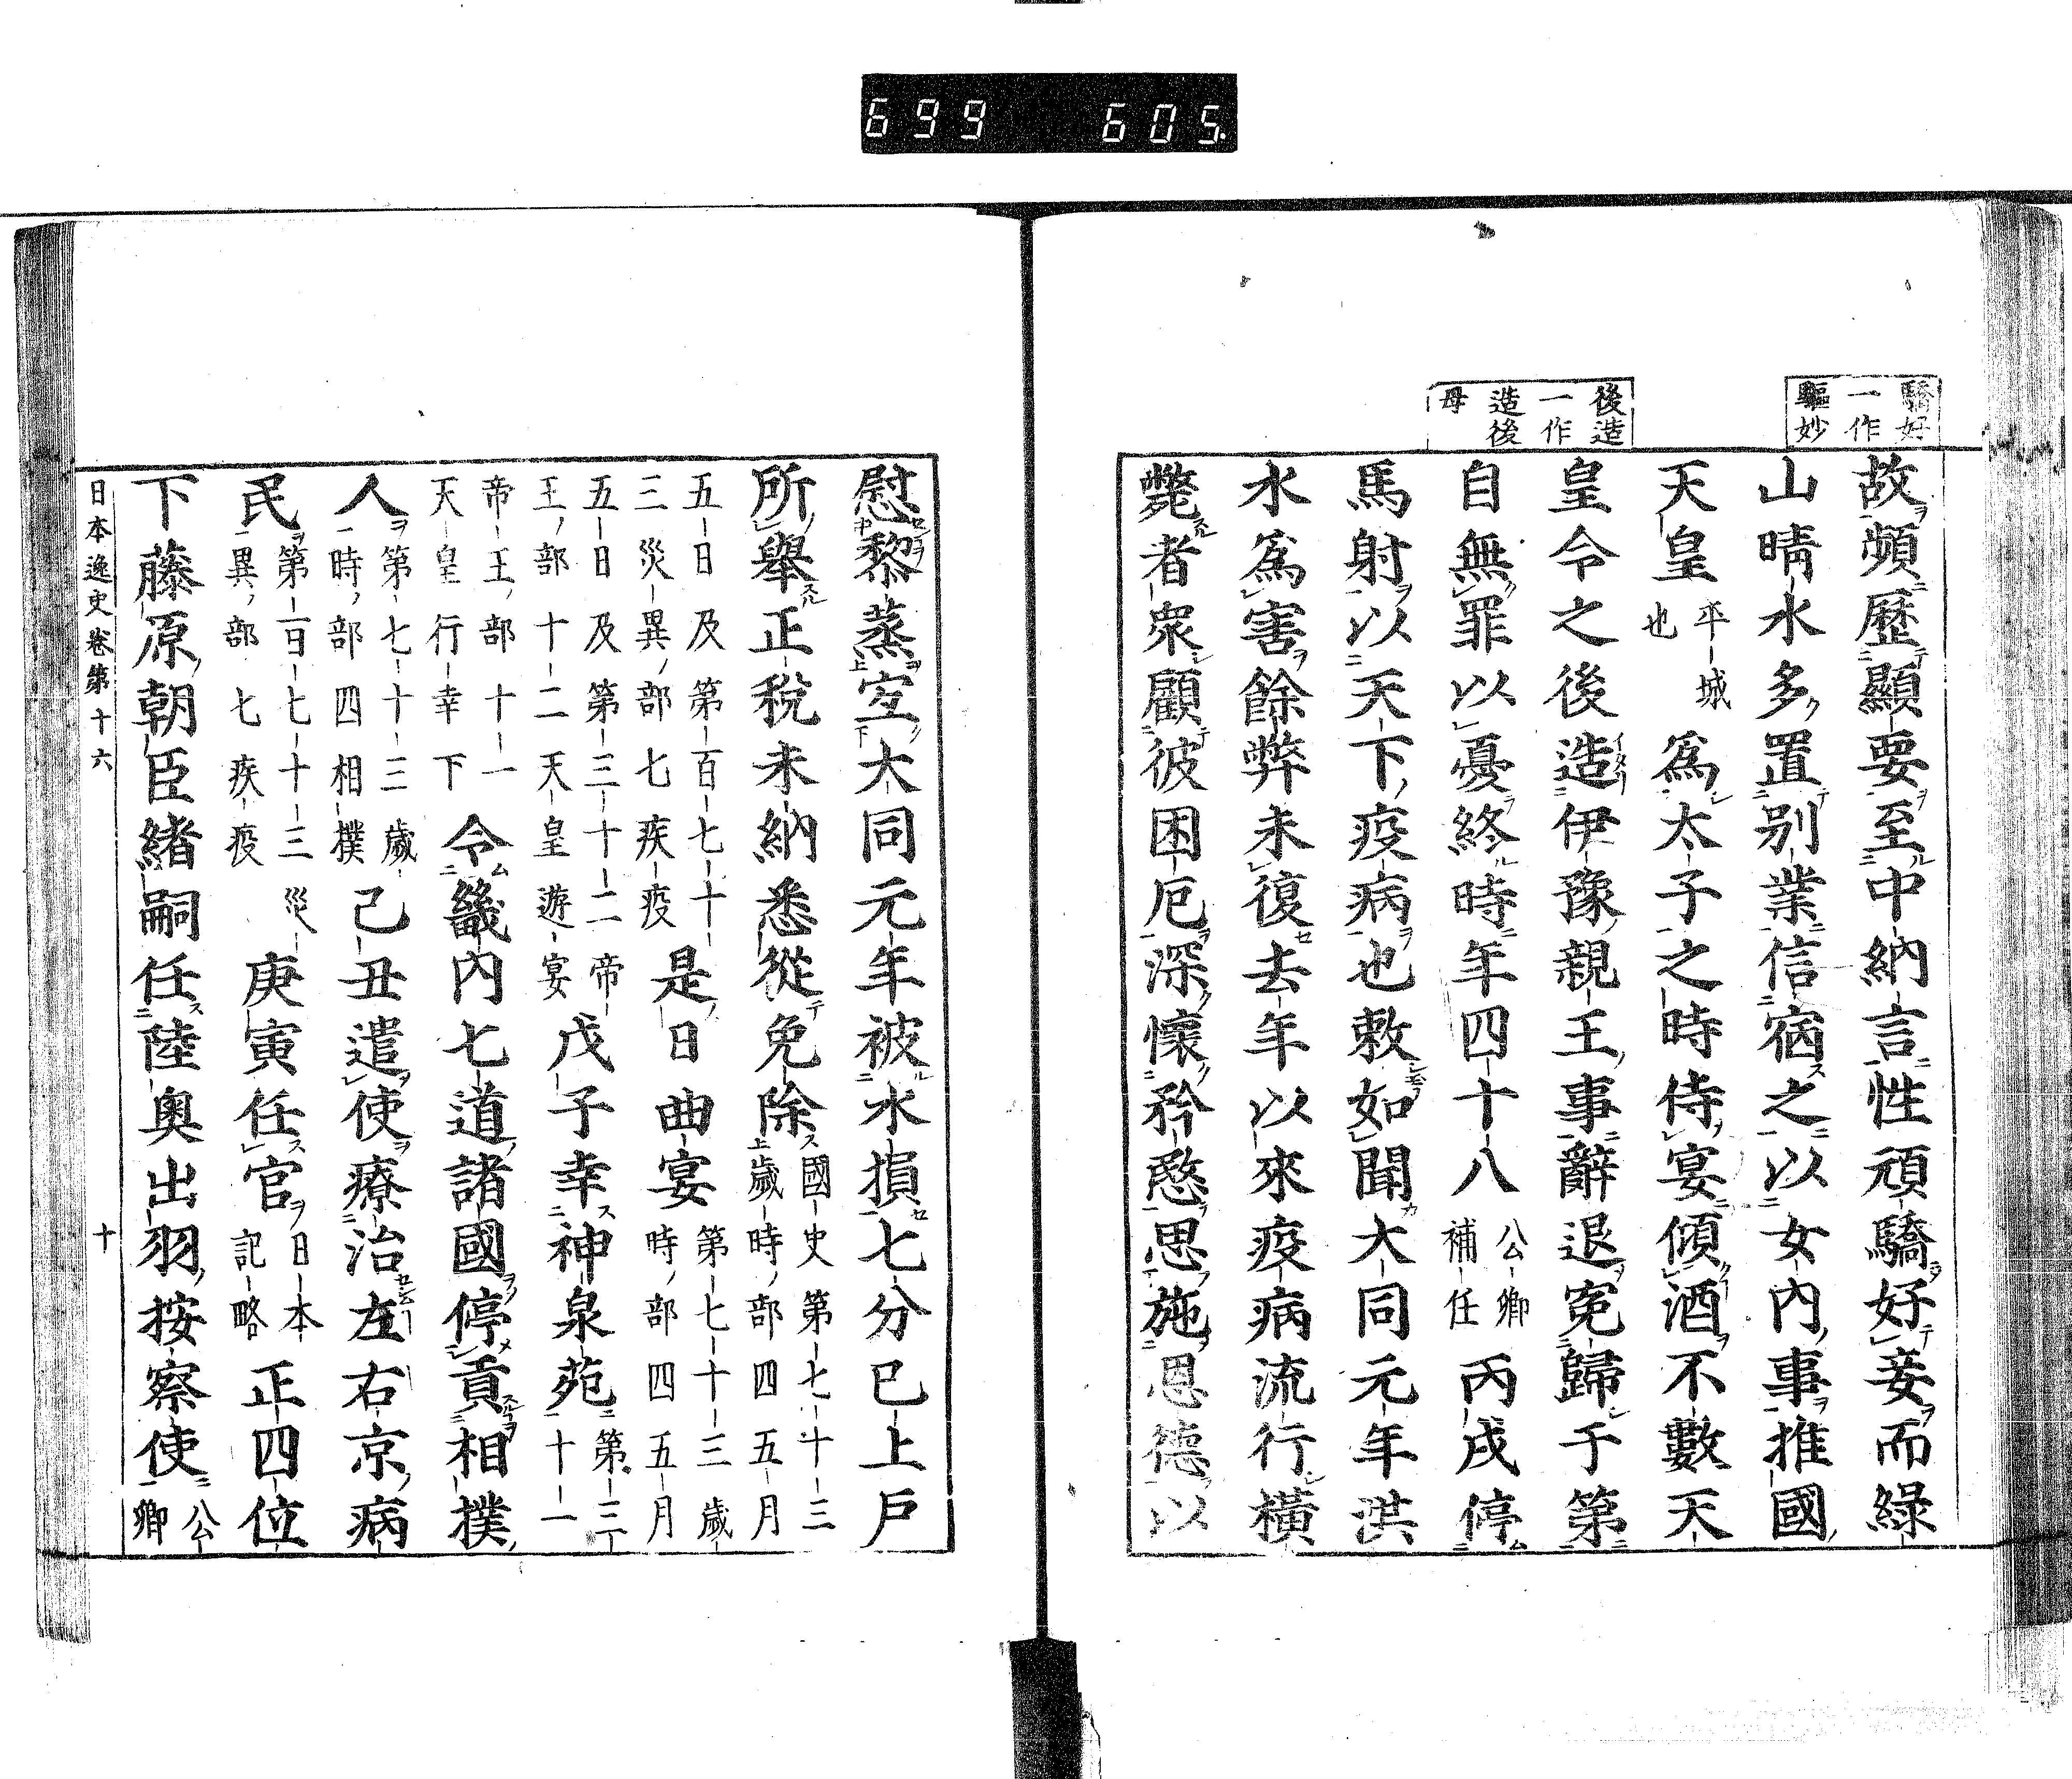 699 605
驕好
一作
驅妙
後造
一作
造後
母
故頻歷顯要至中納言性頑驕好妾而綠
山晴水多置別業信宿之以女內事推國
天皇平城也爲太子之時侍宴傾酒不數天
皇令之後造伊豫親王事辭退寃歸于第
自無罪以憂終時年四十八公卿補任丙戌停
馬射以天下疫病也敕如聞大同元年洪
水爲害餘弊未復去年以來疫病流行橫
斃者衆顧彼困厄深懷矜愍思施恩德以
慰黎蒸宜大同元年被水損七分已上戶
所舉正稅未納悉從免除國史第七十三歲時部四五月
五日及第百七十三災異部七疾疫是日曲宴第七十三歲時部四五月
五日及第三十二帝王部十二天皇遊宴戊子幸神泉苑第三十一
帝王部十一天皇行幸下令畿內七道諸國停貢相撲
人第七十三歲時部四相撲己丑遣使療治左右京病
民第百七十三災異部七疾疫庚寅任官日本記略正四位
下藤原朝臣緒嗣任陸奧出羽按察使公卿
日本逸史卷第十六 十